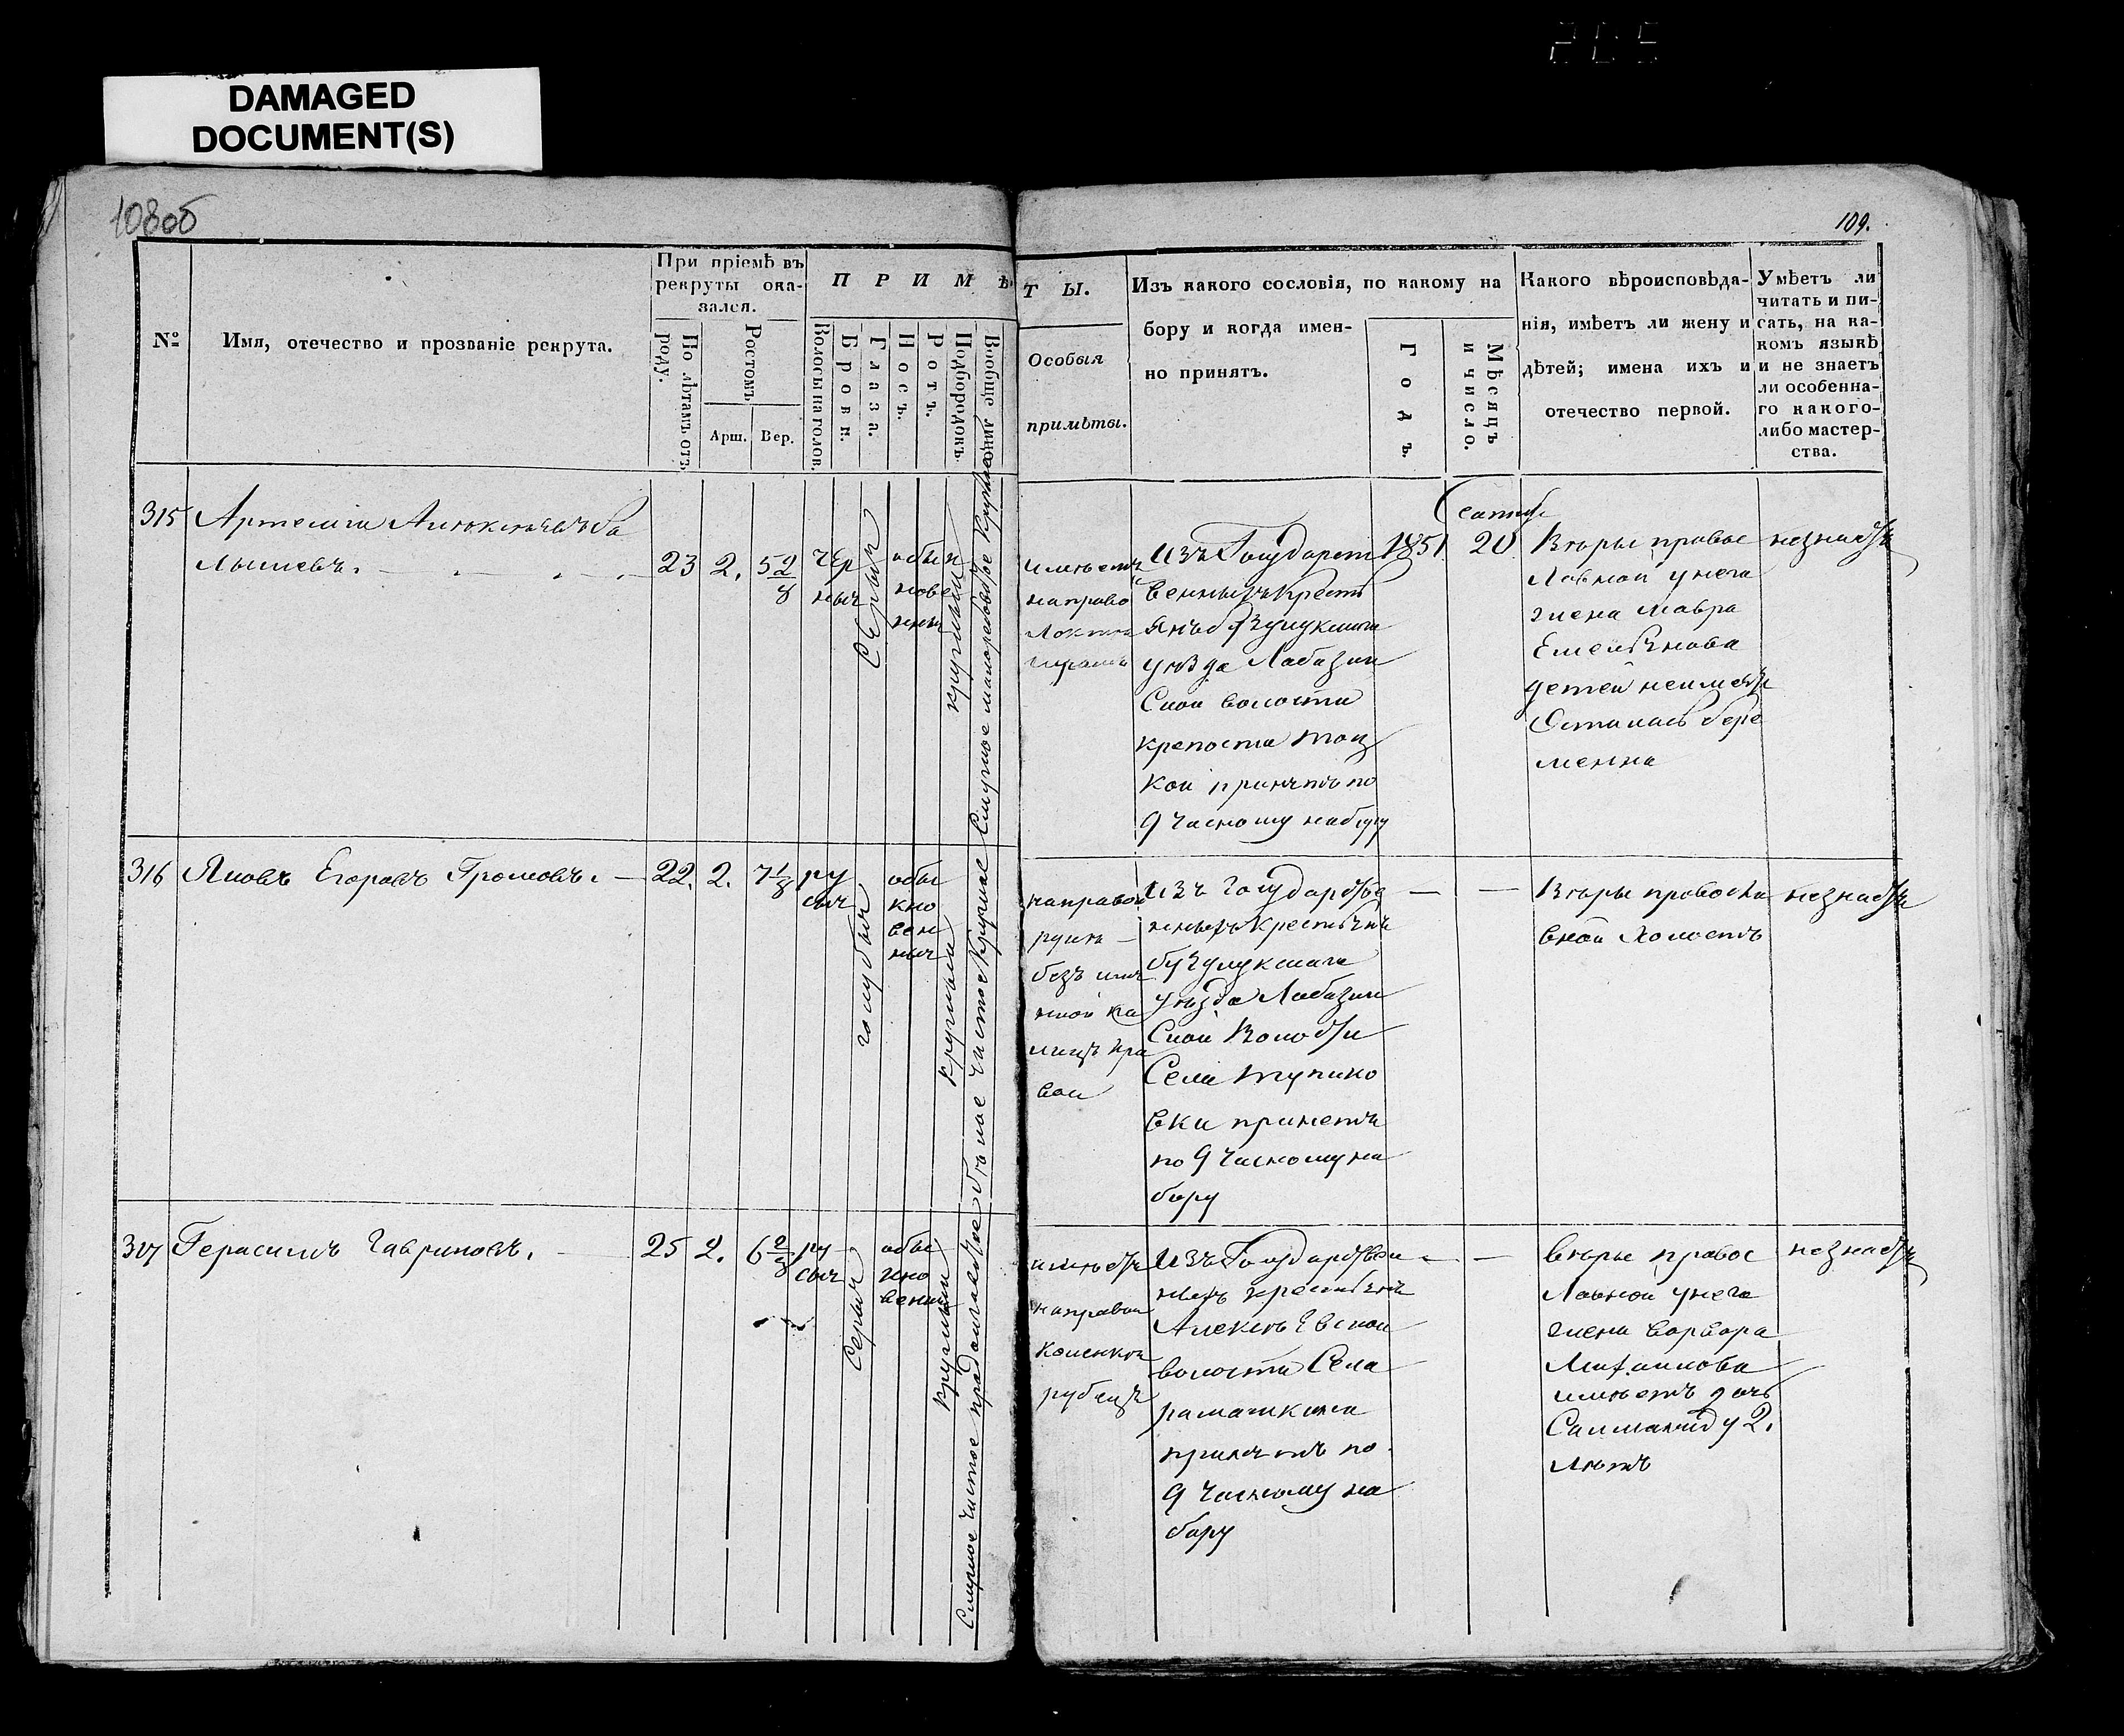 DAMAGED
DOCUMENT(S)
108об
109.
№
Имя, отечество и прозваніе рекрута.
При пріемѣ въ
рекруты ока-
зался.
По лѣтамъ отъ
роду.
Ростомъ
Арш.
Вер.
П Р И М Ѣ
Волосы на голов.
Брови.
Глаза.
Носъ.
Ротъ.
Подбородокъ.
Вообще лице
Т Ы.
Особыя
примѣты.
Изъ какого сословія, по какому на
бору и когда имен-
но принятъ.
Годъ.
Мѣсяцъ
и число.
Какого вѣроисповѣда-
нія, имѣетъ ли жену и
дѣтей; имена ихъ и
отечество первой.
Умѣетъ ли
читать и пи-
сать, на ка-
комъ языкѣ
и не знаетъ
ли особенна-
го какого-
либо мастер-
ства.
315
Артемій
23
2.
5 2/8
чер
ныя
серыя
обык
нове
нны
круглый
Смуглое
круглое
имѣетъ
на право
Изъ Государст
венныхъ кресть
янъ бузулукскаго
уѣзда Лабазин
Ской волости
крепости тоц
кой принятъ по
9 часному набору
1851
20
Вѣры право
Лавной у него
жена Мавра
Емельянова
детей неимѣетъ
Осталась бере
менна
незнаетъ
316
Яковъ Егоровъ Громовъ. —
22.
2.
7 1/8
ру
сыя
голубыя
обы
кно
вен
ныя
круглый
белое чистое круглое
на правой
руке —
безъ
Изъ Государстве
нныхъ крестьянъ
бузулукскаго
уѣзда Лабазин
Ской Волости
Села тупико
вки принетъ
по 9 часному на
бору
— —
Вѣры правосла
вной Холостъ
незнаетъ
317
Герасимъ Гавриловъ.
25
2.
6 2/8
ру
сыя
Серыя
обы
кно
вены
круглый
Смуглое чистое продолговатое
имѣетъ
на правой
коленки
рубецъ
Изъ Государствен
ныхъ крестьянъ
Алексѣевской
волости Села
рамашкина
принятъ по
9 часному на
бору
— —
вѣры право
Лавной у него
жена варвара
Михаилова
имѣетъ дочь
2.
Лѣтъ
незнаетъ